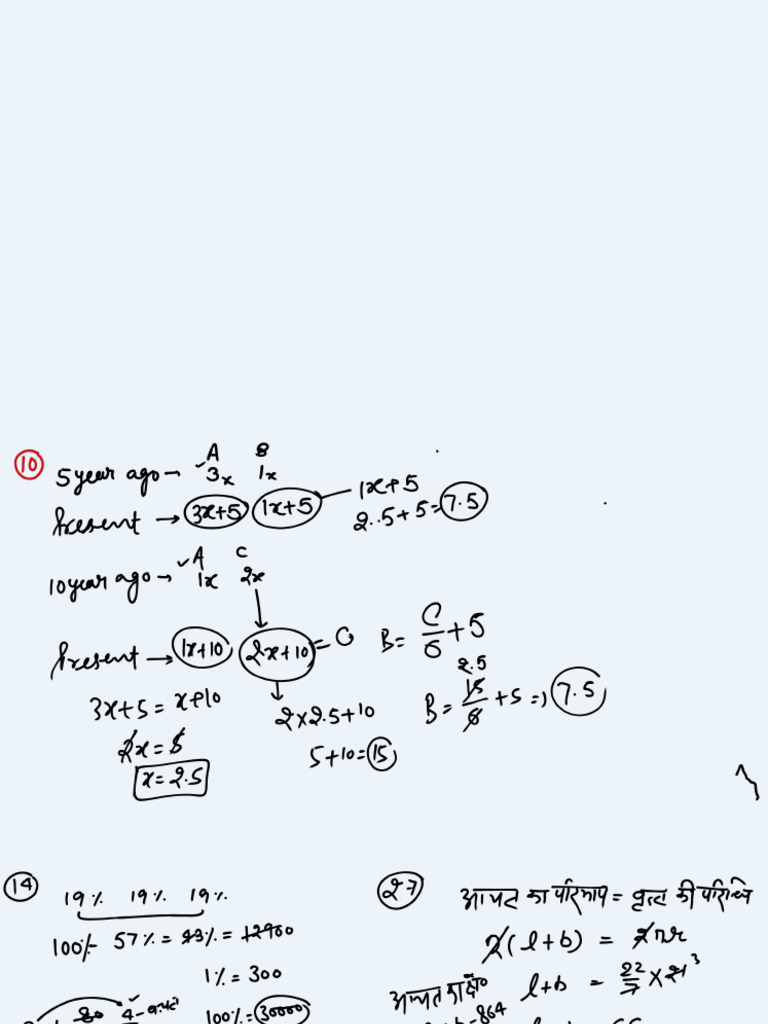 10
5 year ago → A 3x B 1x
Present → 3x+5 1x+5
1x+5
2.5+5=7.5
10 year ago → A 1x C 2x
Present → 1x+10 2x+10 = C
B = C/6 + 5
3x+5 = x+10
2x = 5
x = 2.5
2×2.5+10
5+10=15
B = 15/6 +5 => 7.5
2.5
14
19% 19% 19%
100%- 57% = 43% = 12900
1% = 300
100% = 30000
27
आयत का परिमाप = वृत्त की परिधि
2(l+b) = 2πr
l+b = 22/7 × 21 3